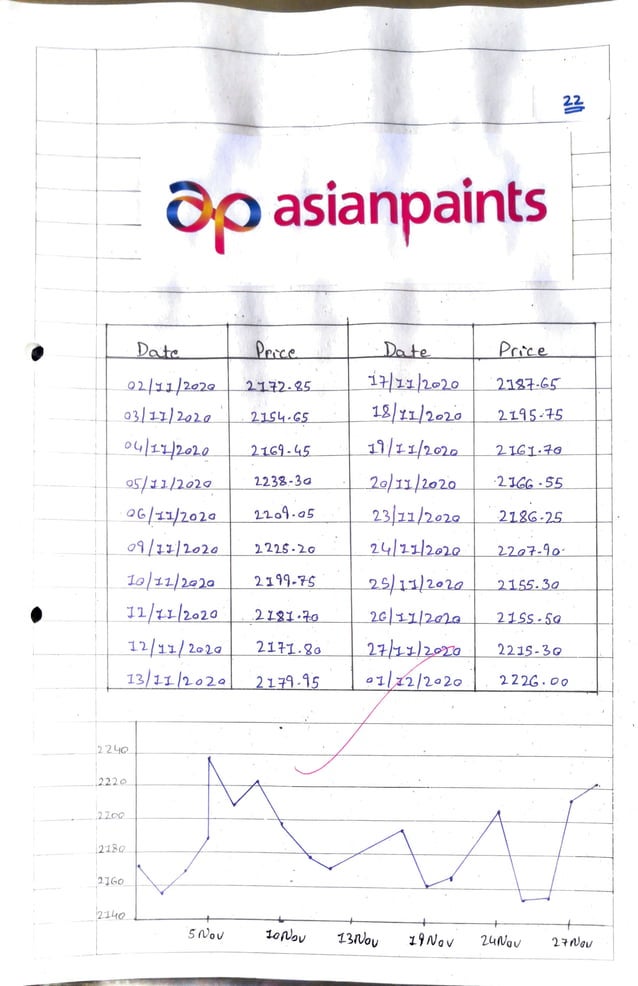 22
ap asianpaints
Date Price Date Price
02/11/2020 2172.85 17/11/2020 2187.65
03/11/2020 2154.65 18/11/2020 2195.75
04/11/2020 2169.45 19/11/2020 2161.70
05/11/2020 2238.30 20/11/2020 2166.55
06/11/2020 2209.05 23/11/2020 2186.25
09/11/2020 2225.20 24/11/2020 2207.90
10/11/2020 2199.75 25/11/2020 2155.30
11/11/2020 2181.70 26/11/2020 2155.50
12/11/2020 2171.80 27/11/2020 2215.30
13/11/2020 2179.95 01/12/2020 2226.00
2240
2220
2200
2180
2160
2140
5Nov 10Nov 13Nov 19Nov 24Nov 27Nov